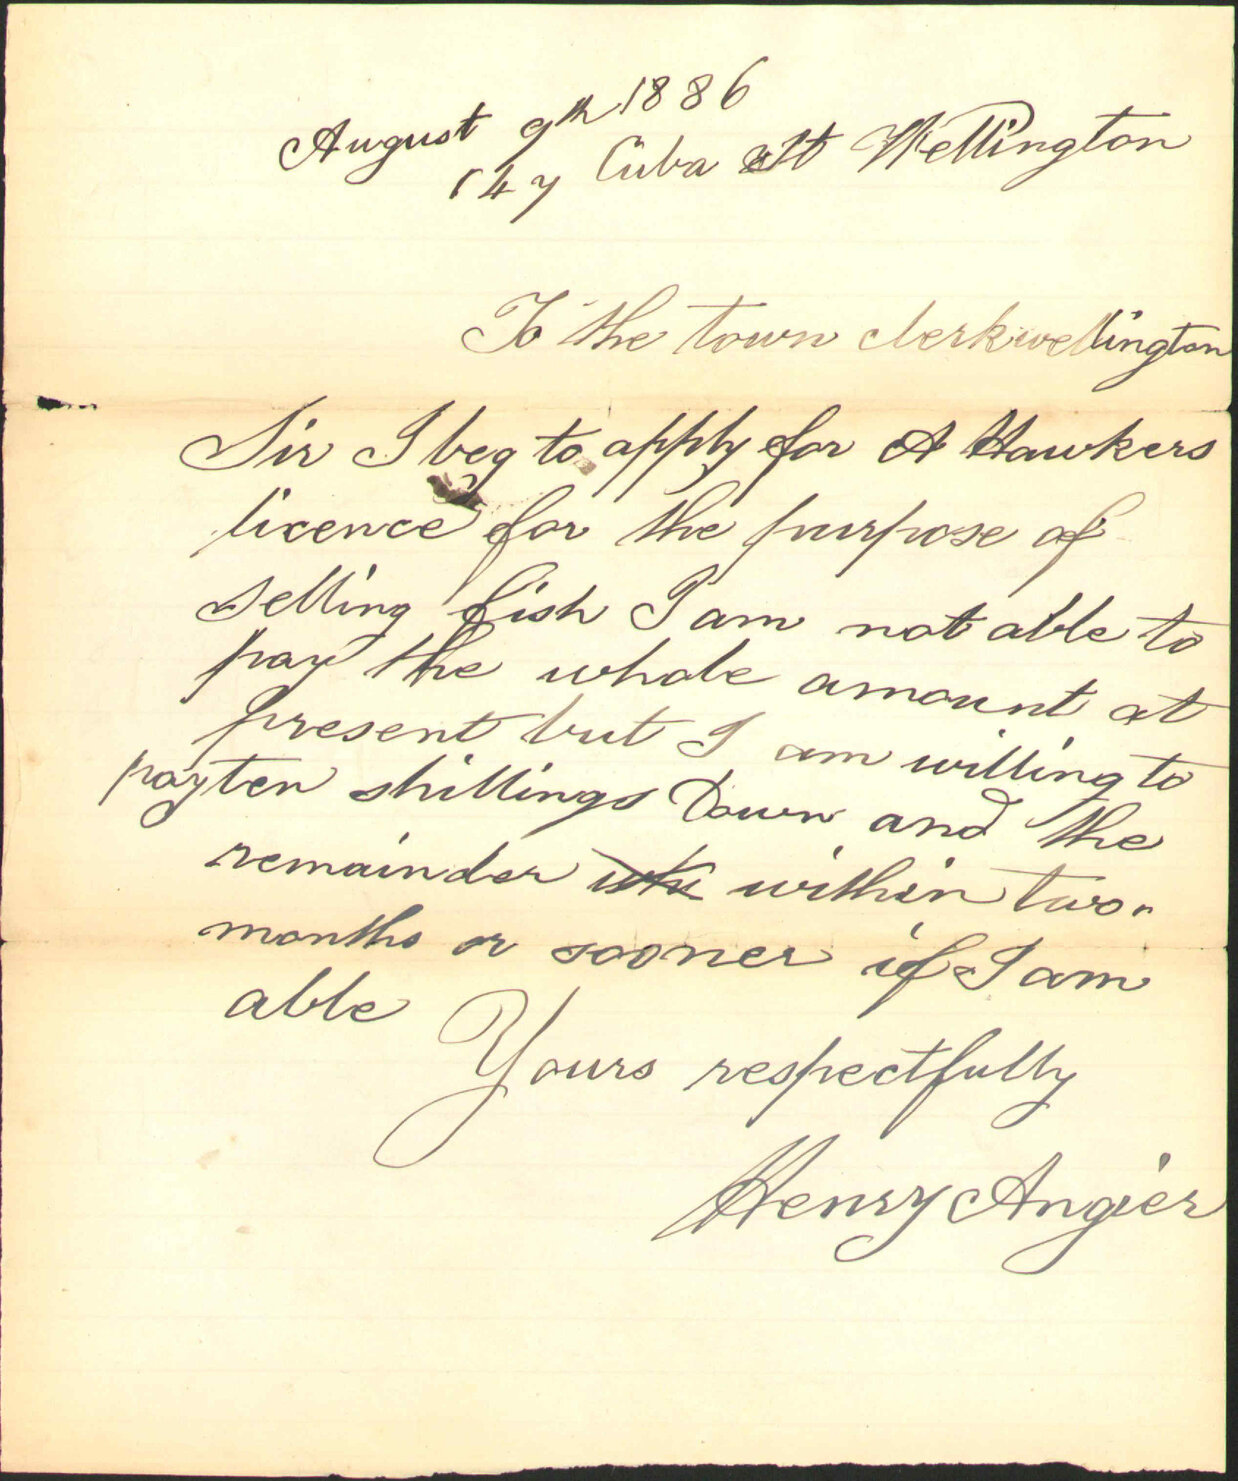 August 9th 1886
147 Cuba St Wellington
To the town clerk wellington
Sir I beg to apply for A Hawkers
licence for the purpose of
selling fish I am not able to
pay the whole amount at
present but I am willing to
pay ten shillings Down and the
remainder within two
months or sooner if I am
able
Yours respectfully
Henry Angier